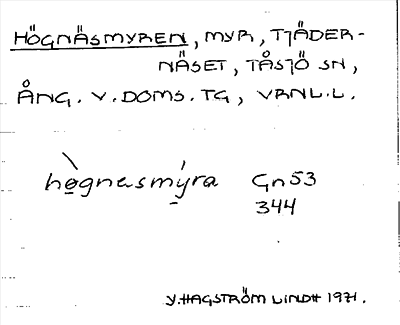 HÖGNÄSMYREN, MYR, TJÄDER-
NÄSET, TÅSJÖ SN,
ÅNG. V. DOMS. TG, VRNL.L.
hògnasmýra Gn 53
344
Y. HAGSTRÖM LINDH 1971.